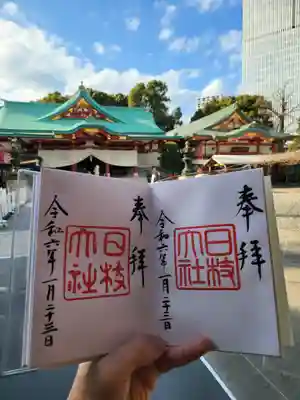 奉拝
日枝
大社
令和六年一月二十三日
奉拝
日枝
大社
令和六年一月二十三日